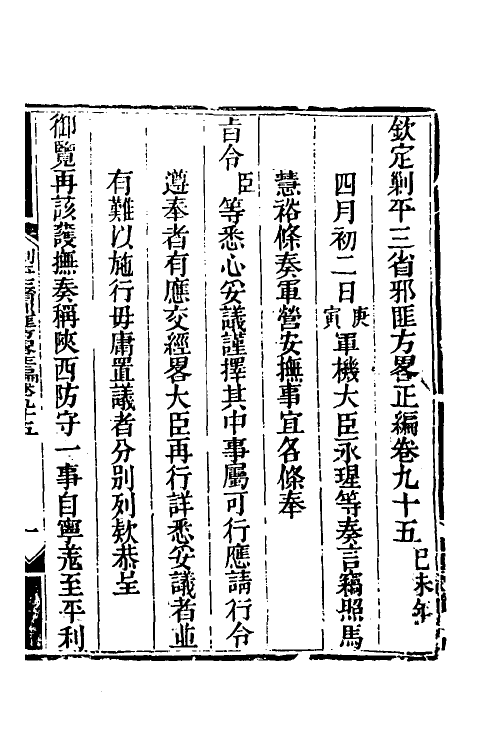 欽定剿平三省邪匪方畧正編卷九十五 己未年
四月初二日庚寅軍機大臣永瑆等奏言竊照馬
慧裕條奏軍營安撫事宜各條奉
旨令臣等悉心妥議謹擇其中事屬可行應請行令
遵奉者有應交經畧大臣再行詳悉妥議者並
有難以施行毋庸置議者分別列欵恭呈
御覽再該護撫奏稱陝西防守一事自寧羗至平利